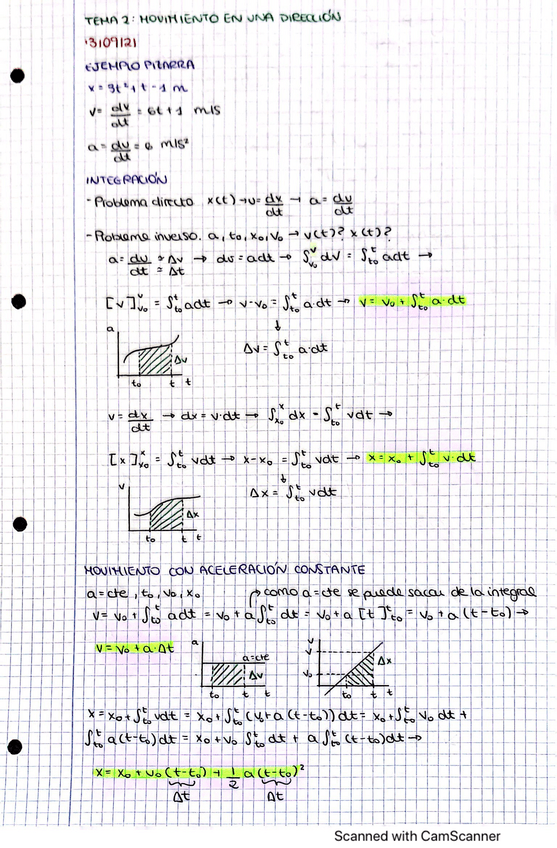 TEMA 2: MOVIMIENTO EN UNA DIRECCIÓN
13/09/21
EJEMPLO PIZARRA
x = 3t² + t - 1 m
v = dv/dt = 6t + 1 m/s
a = dv/dt = 6 m/s²
INTEGRACIÓN
- Problema directo x(t) → v = dx/dt → a = dv/dt
- Probleme inverso. a, t₀, x₀, v₀ → v(t)? x(t)?
a = dv/dt ≃ Δv/≃ Δt → dv = adt → ∫ᵥ₀ᵛ dv = ∫ₜ₀ᵗ adt →
[v]ᵥ₀ᵛ = ∫ₜ₀ᵗ adt → v - v₀ = ∫ₜ₀ᵗ a·dt → v = v₀ + ∫ₜ₀ᵗ a·dt
↓
Δv = ∫ₜ₀ᵗ a·dt
a
Δv
t₀ t t
v = dx/dt → dx = v·dt → ∫ₓ₀ˣ dx = ∫ₜ₀ᵗ vdt →
[x]ₓ₀ˣ = ∫ₜ₀ᵗ vdt → x - x₀ = ∫ₜ₀ᵗ vdt → x = x₀ + ∫ₜ₀ᵗ v·dt
↓
Δx = ∫ₜ₀ᵗ vdt
v
Δx
t₀ t t
MOVIMIENTO CON ACELERACIÓN CONSTANTE
a = cte, t₀, v₀, x₀ como a = cte se puede sacar de la integral
v = v₀ + ∫ₜ₀ᵗ adt = v₀ + a∫ₜ₀ᵗ dt = v₀ + a [t]ₜ₀ᵗ = v₀ + a (t - t₀) →
v = v₀ + a·Δt
a
a = cte
Δv
t₀ t t
v
v
v₀
Δx
t₀ t t
x = x₀ + ∫ₜ₀ᵗ vdt = x₀ + ∫ₜ₀ᵗ (v₀ + a (t - t₀)) dt = x₀ + ∫ₜ₀ᵗ v₀ dt +
∫ₜ₀ᵗ a(t - t₀) dt = x₀ + v₀ ∫ₜ₀ᵗ dt + a ∫ₜ₀ᵗ (t - t₀) dt →
x = x₀ + v₀ (t - t₀) + 1/2 a (t - t₀)²
Δt Δt
Scanned with CamScanner